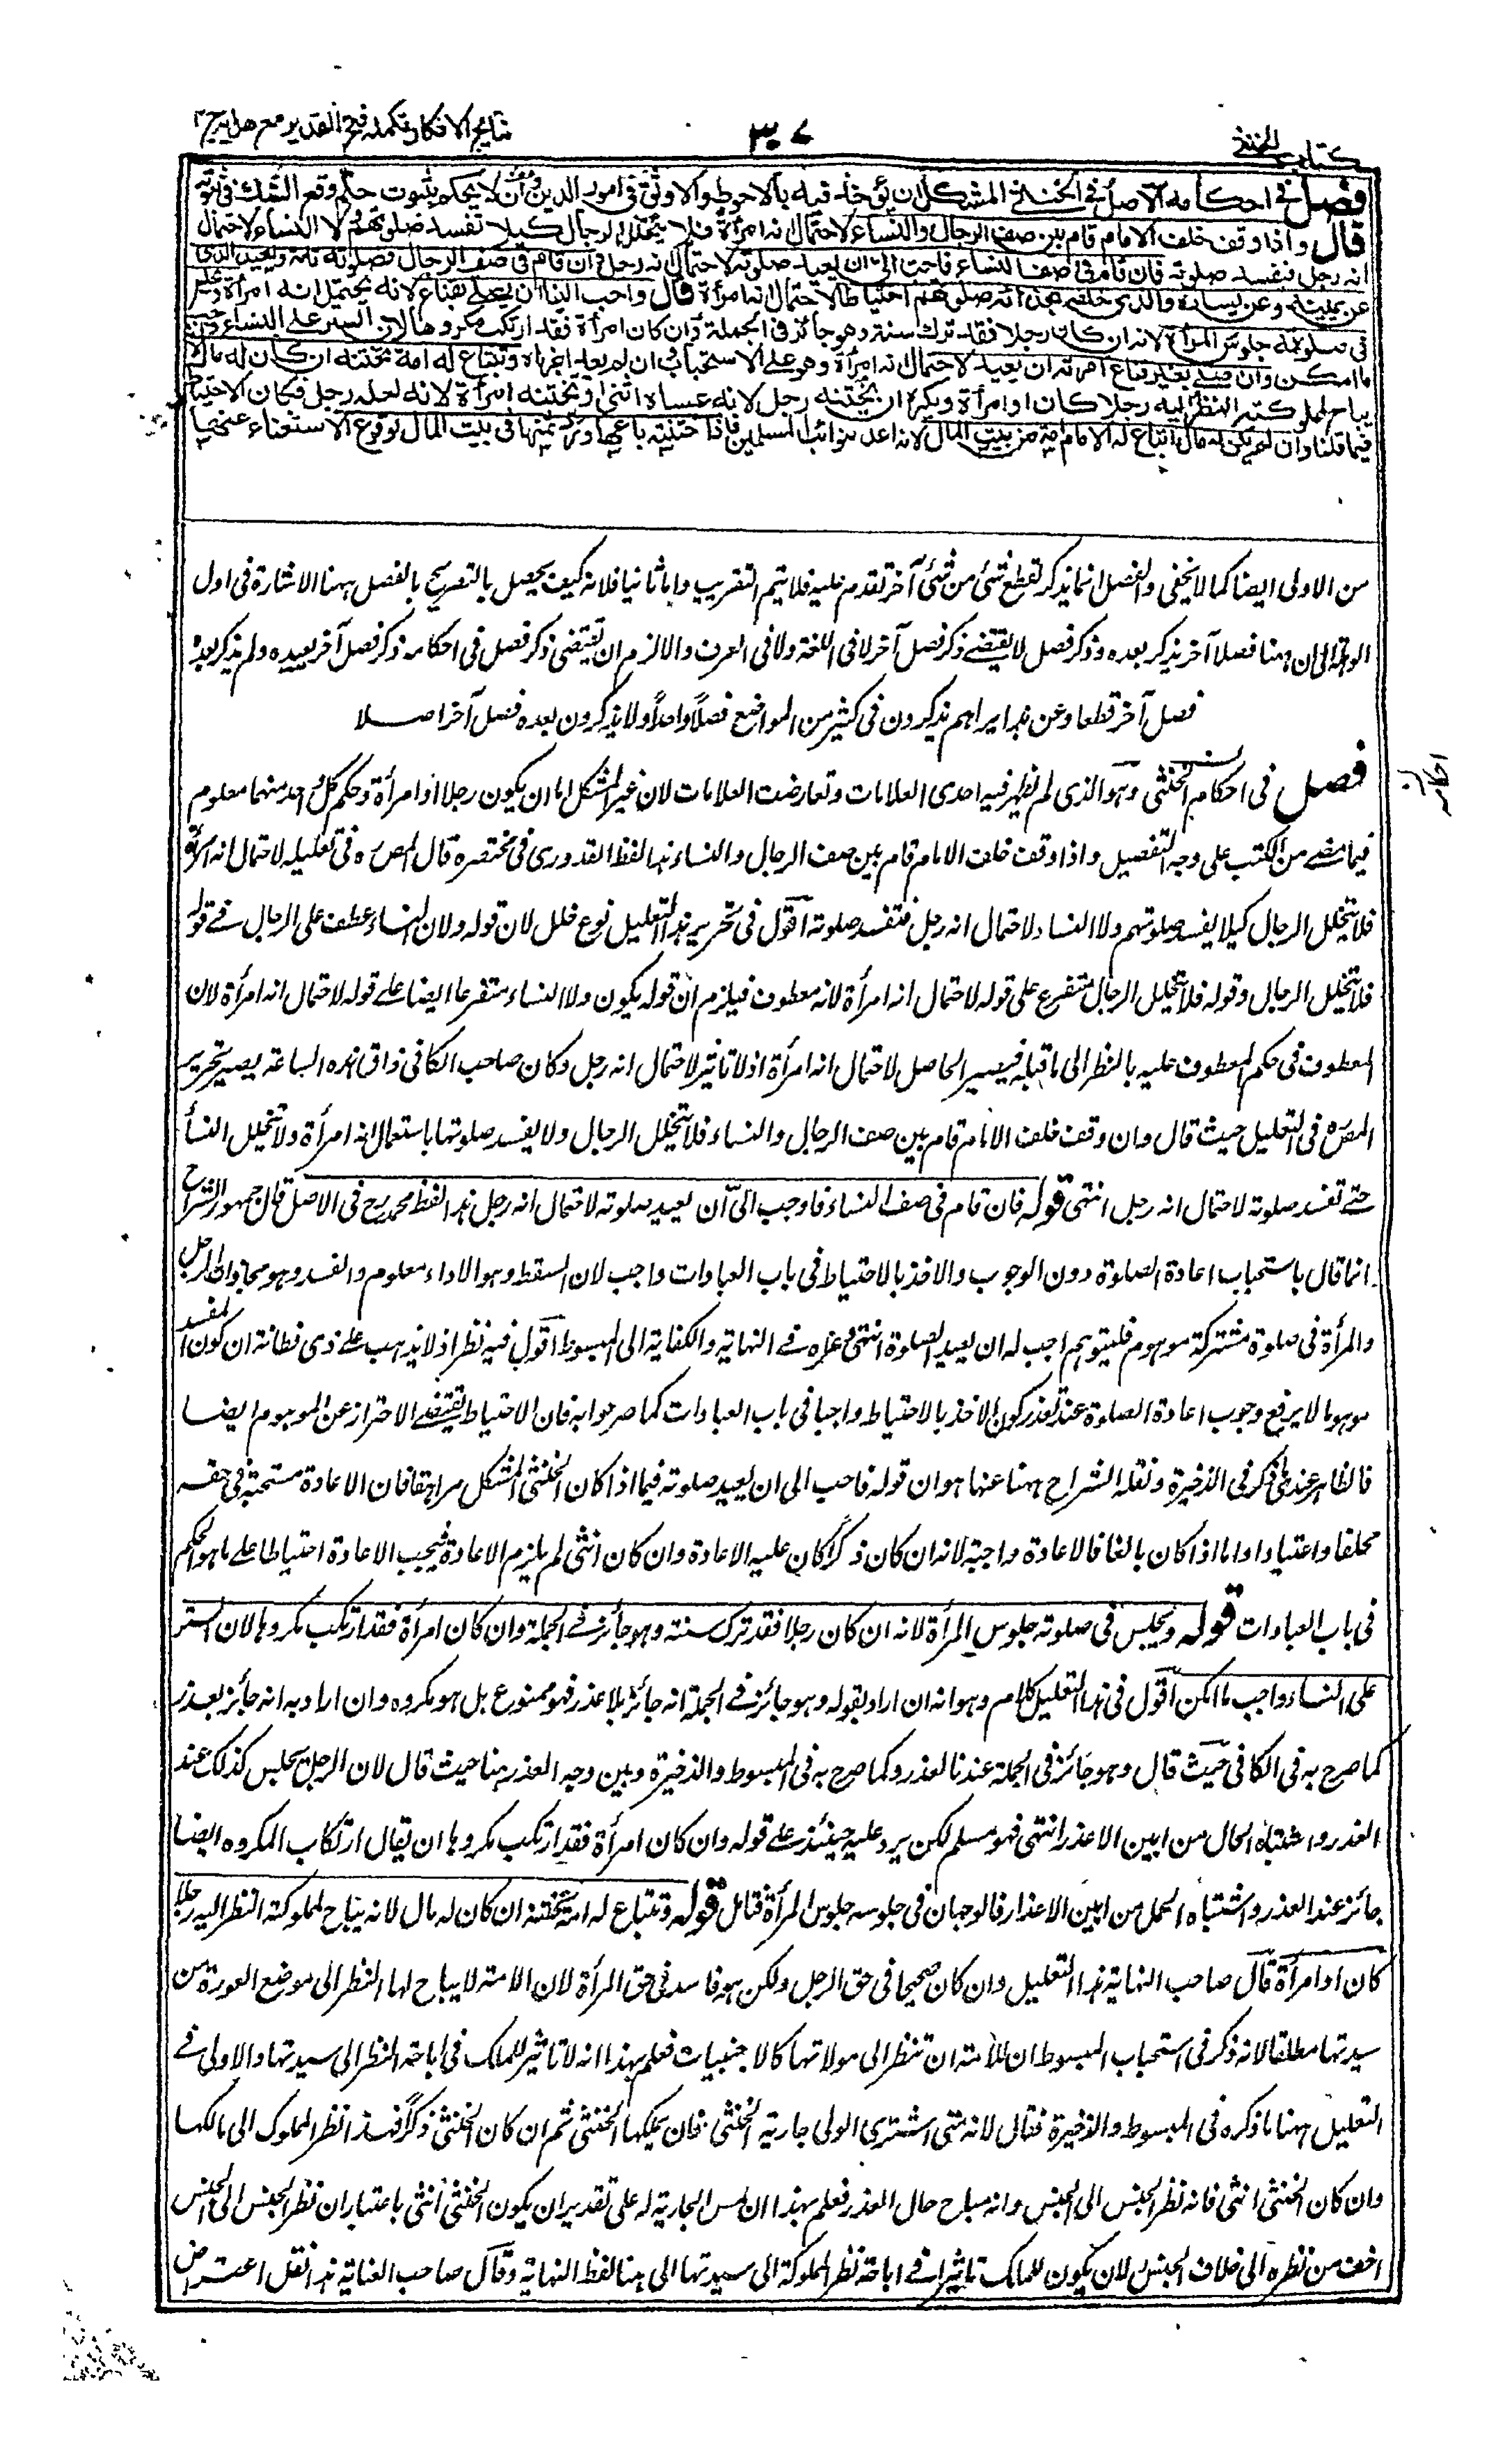 كتاب الخنثى
٣٠٧
نتائج الافكار تكمله فتح القدير مع هدايه ج ٤
فصل فى احكامه الاصل فى الخنثى المشكل ان يؤخذ فيه بالاحوط والاوثق فى امور الدين وان لا يحكم بثبوت حكم وقع الشك فى ثبوته
قال واذا وقف خلف الامام قام بين صف الرجال والنساء لاحتمال انه امرأة فلا يتخلل الرجال كيلا تفسد صلوتهم ولا النساء لاحتمال
انه رجل فتفسد صلوته فان قام فى صف النساء فاحب الى ان يعيد صلوته لاحتمال انه رجل وان قام فى صف الرجال فصلوته تامة ويعيد الذى
عن يمينه وعن يساره والذى خلفه بحذائه صلوتهم احتياطا لاحتمال انه امرأة قال واحب الينا ان يصلى بقناع لانه يحتمل انه امرأة ويجلس
فى صلوته جلوس المرأة لانه ان كان رجلا فقد ترك سنة وهو جائز فى الجملة وان كان امرأة فقد ارتكب مكروها لان الستر على النساء واجب
ما امكن وان صلى بغير قناع امرته ان يعيد لاحتمال انه امرأة وهو على الاستحباب وان لم يعد اجزاه وتبتاع له امة تختنه ان كان له مال لانه
يباح لمملوكته النظر اليه رجلا كان او امرأة ويكره ان يختنه رجل لانه عساه انثى او تختنه امرأة لانه لعله رجل فكان الاحتياط
فيما قلنا وان لم يكن له مال ابتاع له الامام امة من بيت المال لانه اعد لنوائب المسلمين فاذا ختنته باعها ورد ثمنها فى بيت المال لوقوع الاستغناء عنها
من الاولى ايضا كما لا يخفى والفصل انما يذكر لقطع شئ من شئ آخر تقدم عليه فلا يتم التقريب واما ثانيا فلانه كيف يحصل بالتصريح بالفصل ههنا الاشارة فى اول
الوهلة الى ان ههنا فصلا آخر يذكر بعده وذكر فصل لا يقتضى ذكر فصل آخر لا فى اللغة ولا فى العرف والا لزم ان يقتضى ذكر فصل فى احكامه ذكر فصل آخر بعيده ولم يذكر بعده
فصل آخر قطعا وعن هذا يراهم يذكرون فى كثير من المواضع فصلا واحدا ولا يذكرون بعده فصل آخر اصلا
فصل فى احكام الخنثى وهو الذى لم تظهر فيه احدى العلامات وتعارضت العلامات لان غير المشكل اما ان يكون رجلا او امرأة وحكم كل احد منهما معلوم
احكامه
فيما مضى من الكتب على وجه التفصيل واذا وقف خلف الامام قام بين صف الرجال والنساء هذا لفظ القدورى فى مختصره قال المصره فى تعليله لاحتمال انه امرأة
فلا يتخلل الرجال كيلا يفسد صلوتهم ولا النساء لاحتمال انه رجل فتفسد صلوته اقول فى تحرير هذا التعليل نوع خلل لان قوله ولان النساء عطف على الرجال فى قوله
فلا يتخلل الرجال وقوله فلا يتخلل الرجال متفرع على قوله لاحتمال انه امرأة لانه معطوف فيلزم ان قوله يكون ولا النساء متفرعا ايضا على قوله لاحتمال انه امرأة لان
المعطوف فى حكم المعطوف عليه بالنظر الى ما قبله فيصير الحاصل لاحتمال انه امرأة اذ لا تاثير لاحتمال انه رجل وكان صاحب الكافى ذاق هذه البشاعة يصير تحرير
المصره فى التعليل حيث قال وان وقف خلف الامام قام بين صف الرجال والنساء فلا يتخلل الرجال ولا يفسد صلوتها باستعمال انه امرأة ولا تتخلل النسأ
حتى تفسد صلوته لاحتمال انه رجل انتهى قوله فان قام فى صف النساء فاوجب الى ان يعيد صلوته لاحتمال انه رجل هذا لفظ محمد رح فى الاصل قال جمهور الشراح
انما قال باستحباب اعادة الصلوة دون الوجوب والاخذ بالاحتياط فى باب العبادات واجب لان المسقط وهو الاداء معلوم والمفسد وهو محاذاة الرجل
والمرأة فى صلوة مشتركة موهوم فليتوهم احب له ان يعيد الصلوة انتهى وعزاه فى النهاية والكفاية الى المبسوط اقول فيه نظر اذ لا يذهب على ذى فطانة ان كون المفسد
موهوما لا يرفع وجوب اعادة الصلوة عند تعذر كون الاخذ بالاحتياط واجبا فى باب العبادات كما صرحوا به فان الاحتياط يقتضى الاحتراز عن الموهوم ايضا
فالظاهر عندى ما ذكر فى الذخيرة ونقله الشراح ههنا عنها هو ان قوله فاحب الى ان يعيد صلوته فيما اذا كان الخنثى المشكل مراهقا فان الاعادة مستحبة فى حقه
تخلقا واعتيادا واما اذا كان بالغا فالاعادة واجبة لانه ان كان ذكرا كان عليه الاعادة وان كان انثى لم يلزم الاعادة فيجب الاعادة احتياطا على ما هو الحكم
فى باب العبادات قوله ويجلس فى صلوته جلوس المرأة لانه ان كان رجلا فقد ترك سنة وهو جائز فى الجملة وان كان امرأة فقد ارتكب مكروها لان الستر
على النساء واجب ما امكن اقول فى هذا التعليل كلام وهو انه ان اراد بقوله وهو جائز فى الجملة انه جائز بلا عذر فهو ممنوع بل هو مكروه وان اراد به انه جائز بعذر
كما صرح به فى الكافى حيث قال وهو جائز فى الجملة عندنا لعذر وكما صرح به فى المبسوط والذخيرة وبين وجه العذر هنا حيث قال لان الرجل يجلس كذلك عند
العذر واشتباه الحال من ابين الاعذار انتهى فهو مسلم لكن يرد عليه حينئذ على قوله وان كان امرأة فقد ارتكب مكروها ان يقال ارتكاب المكروه ايضا
جائز عند العذر واشتباه الحال من ابين الاعذار فالوجهان فى جلوسه جلوس المرأة فتامل قوله وتبتاع له امة تختنه ان كان له مال لانه يباح لمملوكته النظر اليه رجلا
كان او امرأة قال صاحب النهاية هذا التعليل وان كان صحيحا فى حق الرجل ولكن هو فاسد فى حق المرأة لان الامة لا يباح لها النظر الى موضع العورة من
سيدتها مطلقا لانه ذكر فى استحباب المبسوط ان للامة ان تنظر الى مولاتها كالاجنبيات فعلم بهذا انه لا تاثير للملك فى اباحة النظر الى سيدتها والاولى فى
التعليل ههنا ما ذكره فى المبسوط والذخيرة فقال لانه متى اشترى الولى جارية الخنثى فان يملكها الخنثى ثم ان كان الخنثى ذكرا فهذا نظر المملوك الى مالكها
وان كان الخنثى انثى فانه نظر الجنس الى الجنس وانه مباح حال العذر فعلم بهذا ان لمس الجارية له على تقدير ان يكون الخنثى انثى باعتبار ان نظر الجنس الى الجنس
اخف من نظره الى خلاف الجنس لان يكون للملك تاثيرا فى اباحة نظر المملوكة الى سيدتها الى هنا لفظ النهاية وقال صاحب العناية هذا نقل اعتراض